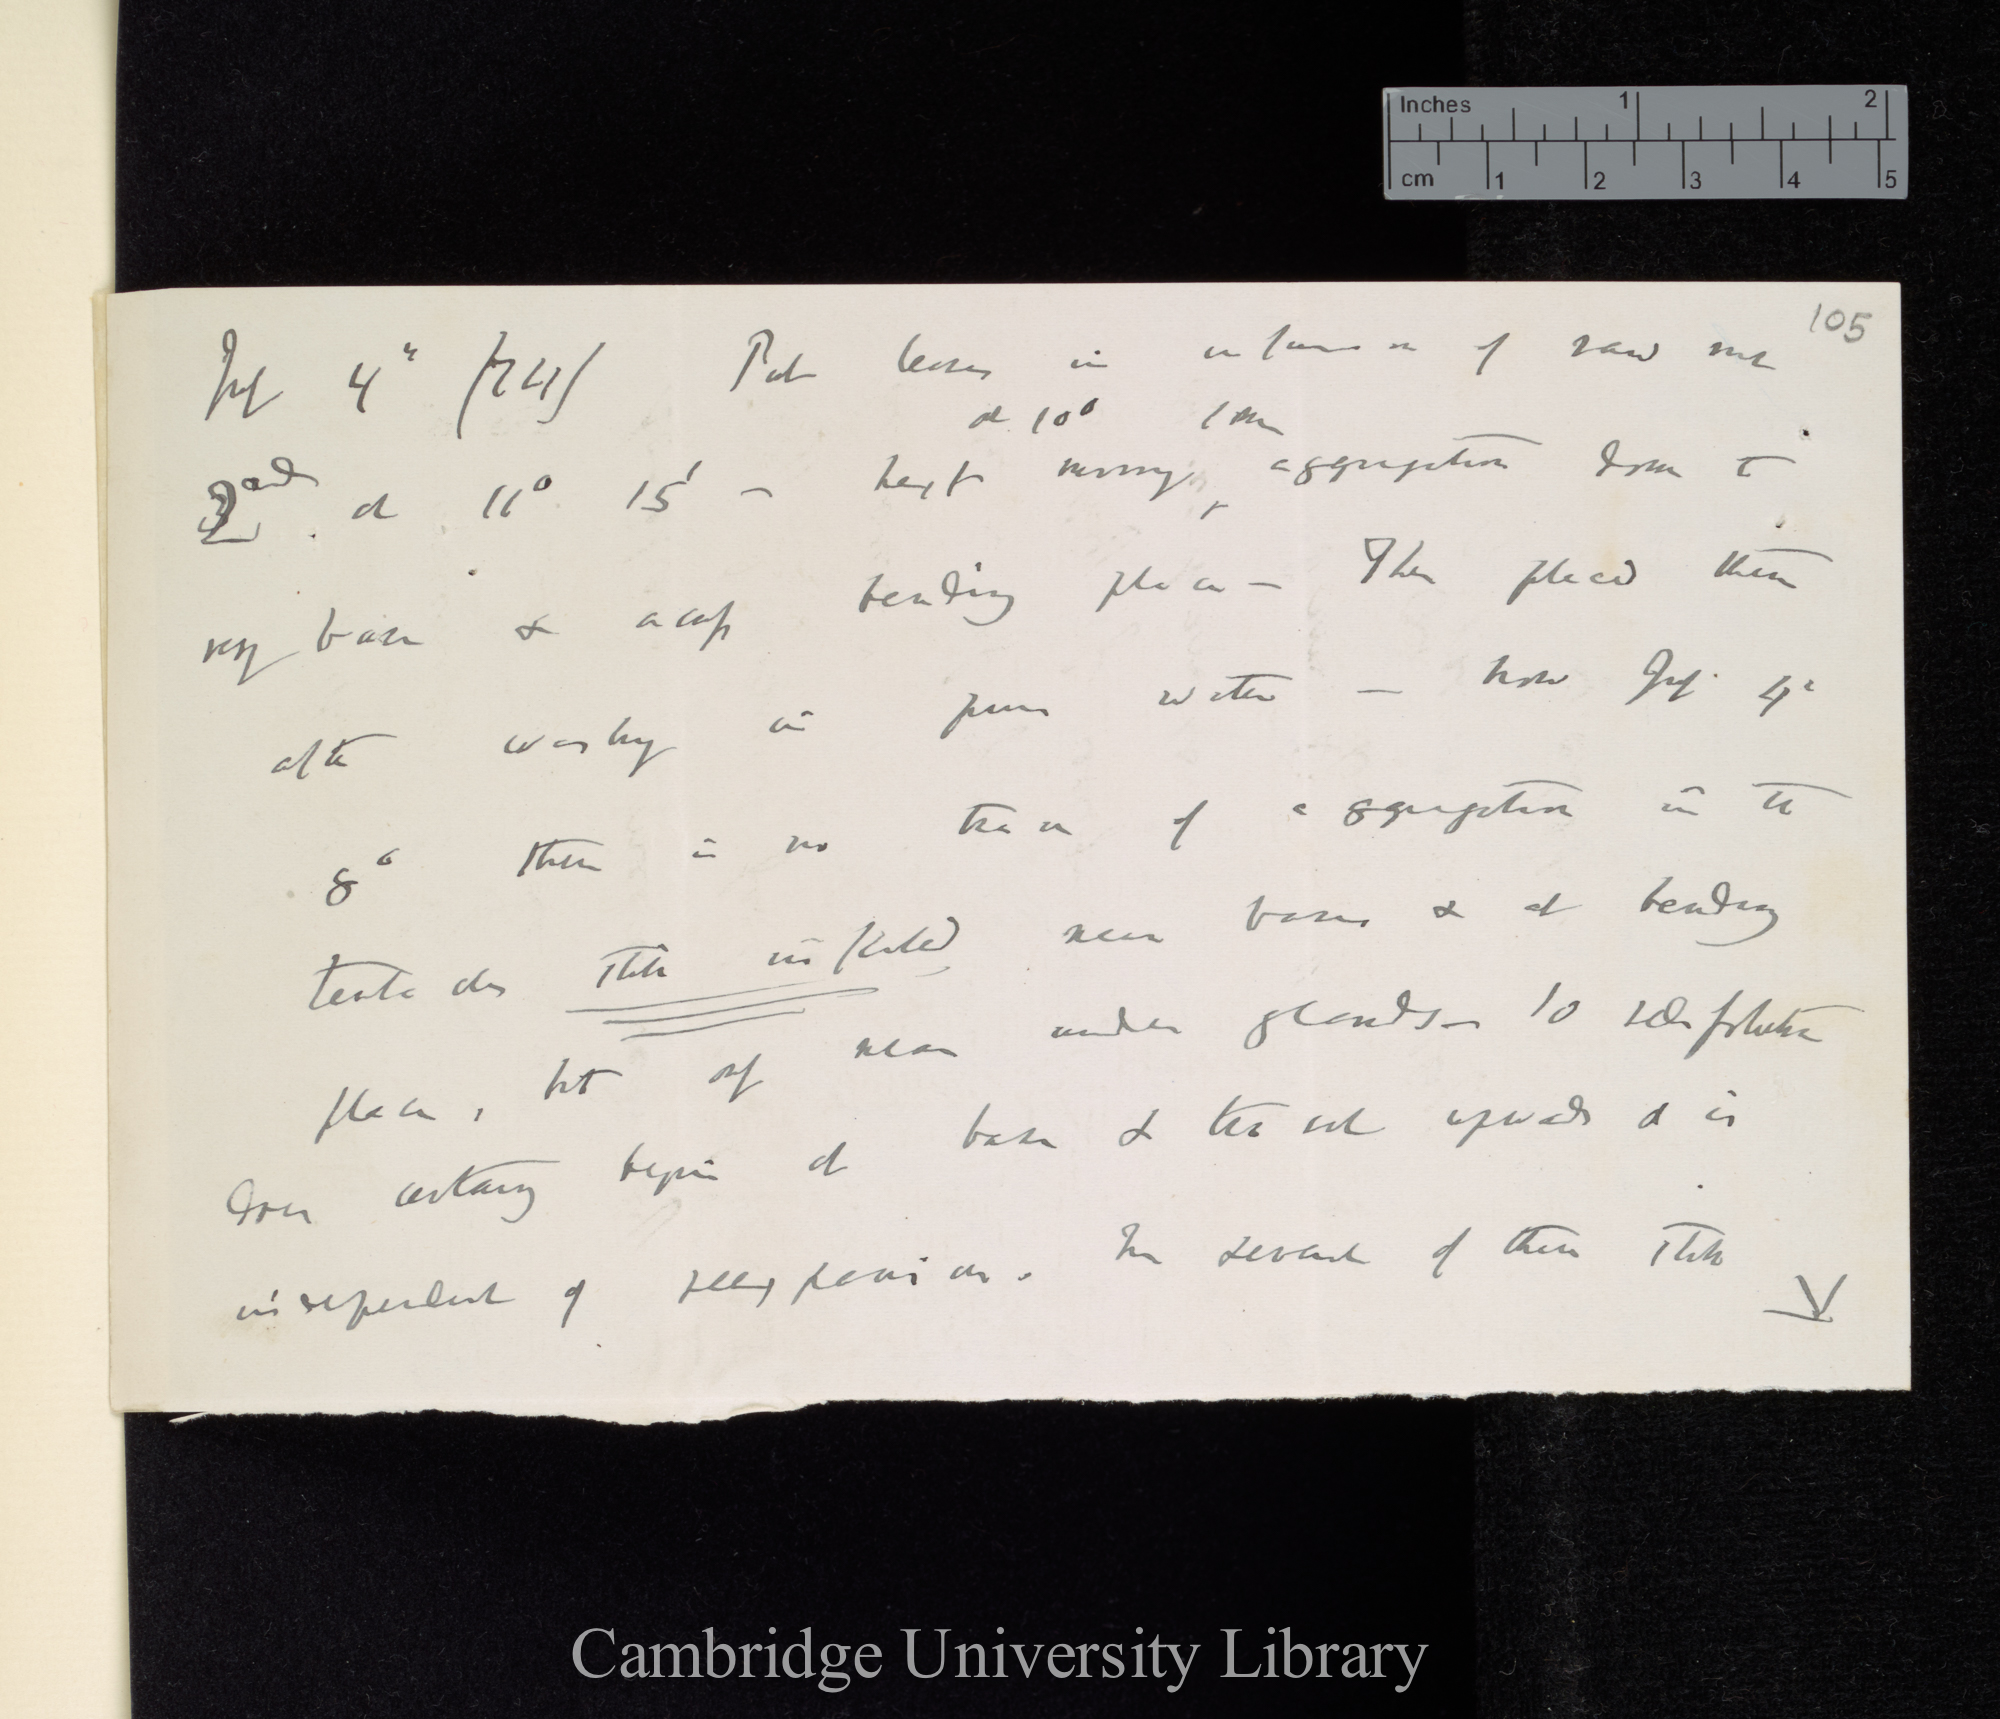 Inches 1 2
cm 1 2 3 4 5
105
July 4th (74) Put leaves in infusion of raw meat
at 10° 1 m
2nd at 11° 15' — next morning, aggregation down to
very base & across bending place — Then placed them
after washing in pure water — now July 4th
8° there is no trace of aggregation in the
tentacles still inflected near bases & at bending
place, but only near under glands — so redissolution
does certainly begin at base & travel upwards & is
independent of reexpansion. In several of these still
Cambridge University Library